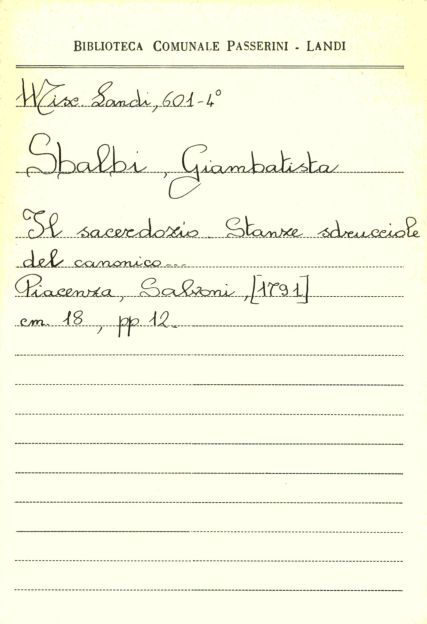 BIBLIOTECA COMUNALE PASSERINI - LANDI
Misc Landi, 601-4°
Sbalbi, Giambatista
Il sacerdozio. Stanze sdrucciole
del canonico...
Piacenza, Salvoni, [1791]
cm. 18, pp 12.